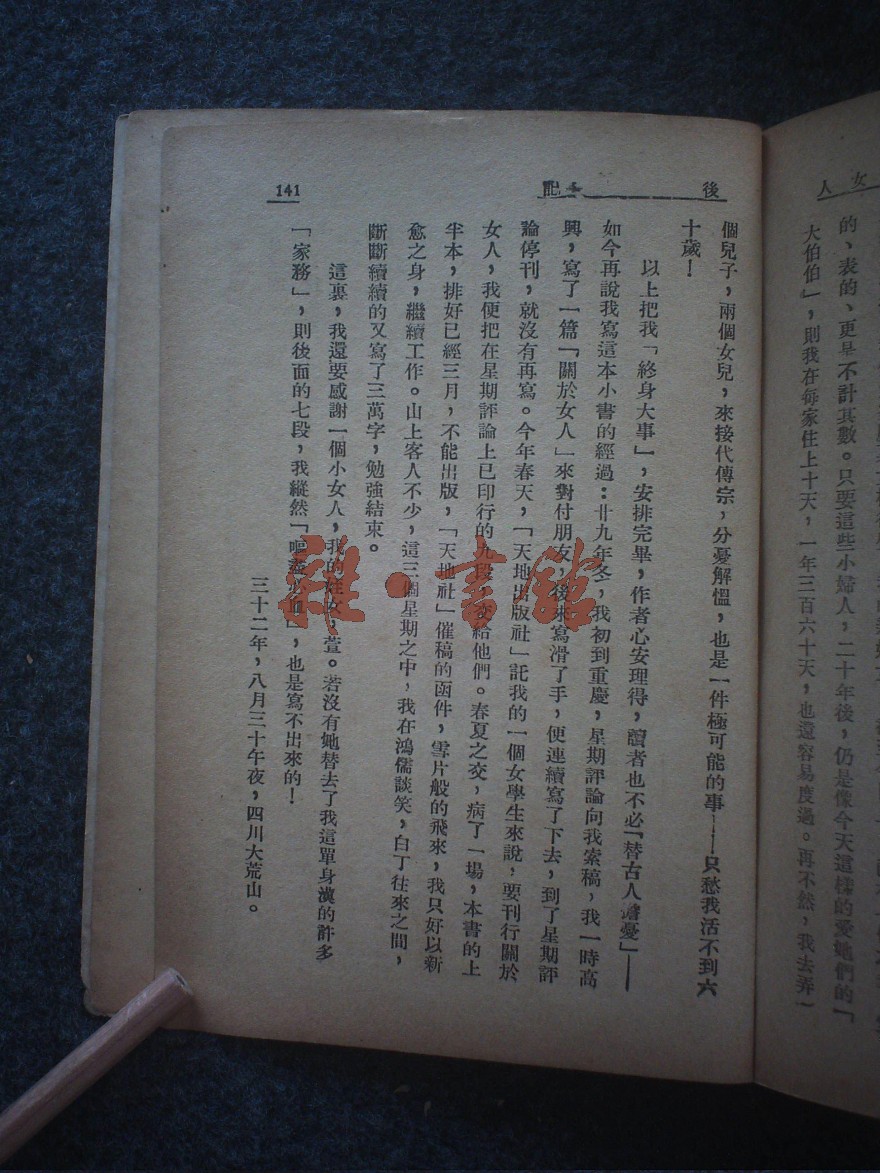 女人
的、表的、更是不計其數。只要這些小婦人，二十年後，仍是像今天這樣的愛她們的「
大伯伯」，則我在每家住上十天，一年三百六十天，也還容易度過。再不然，我去弄一
後記
141
個兒子，兩個女兒，來接代傳宗，分憂解慍，也是一件極可能的事——只愁我活不到六
十歲！
以上把我「終身大事」，安排完畢，作者心安理得，讀者也不必「替古人擔憂」——
如今再說我寫這本小書的經過：廿九年冬，我初到重慶，星期評論向我索稿，我一時高
興，寫了一篇「關於女人」來對付朋友，後來寫滑了手，便連續寫了下去，到了星期評
論停刊，就沒有再寫。今年春天，「天地出版社」託我的一個女學生來說，要刊行關於
女人，我便把在星期評論上已印行的九段，交給他們。春夏之交，病了一場，本書的上
半本，排好已經三月，不能出版，「天地社」催稿的函件，雪片般的飛來，我只好以新
愈之身，繼續工作。山上客人不少，這三個星期之中，我在鴻儒談笑，白丁往來之間，
斷斷續續的又寫了三萬字，勉強結束。
這裏，我還要感謝一個小女人，我的姪女，萱。若沒有她替去了我這單身漢的許多
「家務」，則後面的七段，我縱然「嘔盡心血」，也是寫不出來的！
三十二年，八月三十午夜，四川大荒山。
雜·書館